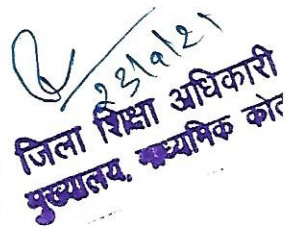 23/9/21
जिला शिक्षा अधिकारी
मुख्यालय, माध्यमिक कोट